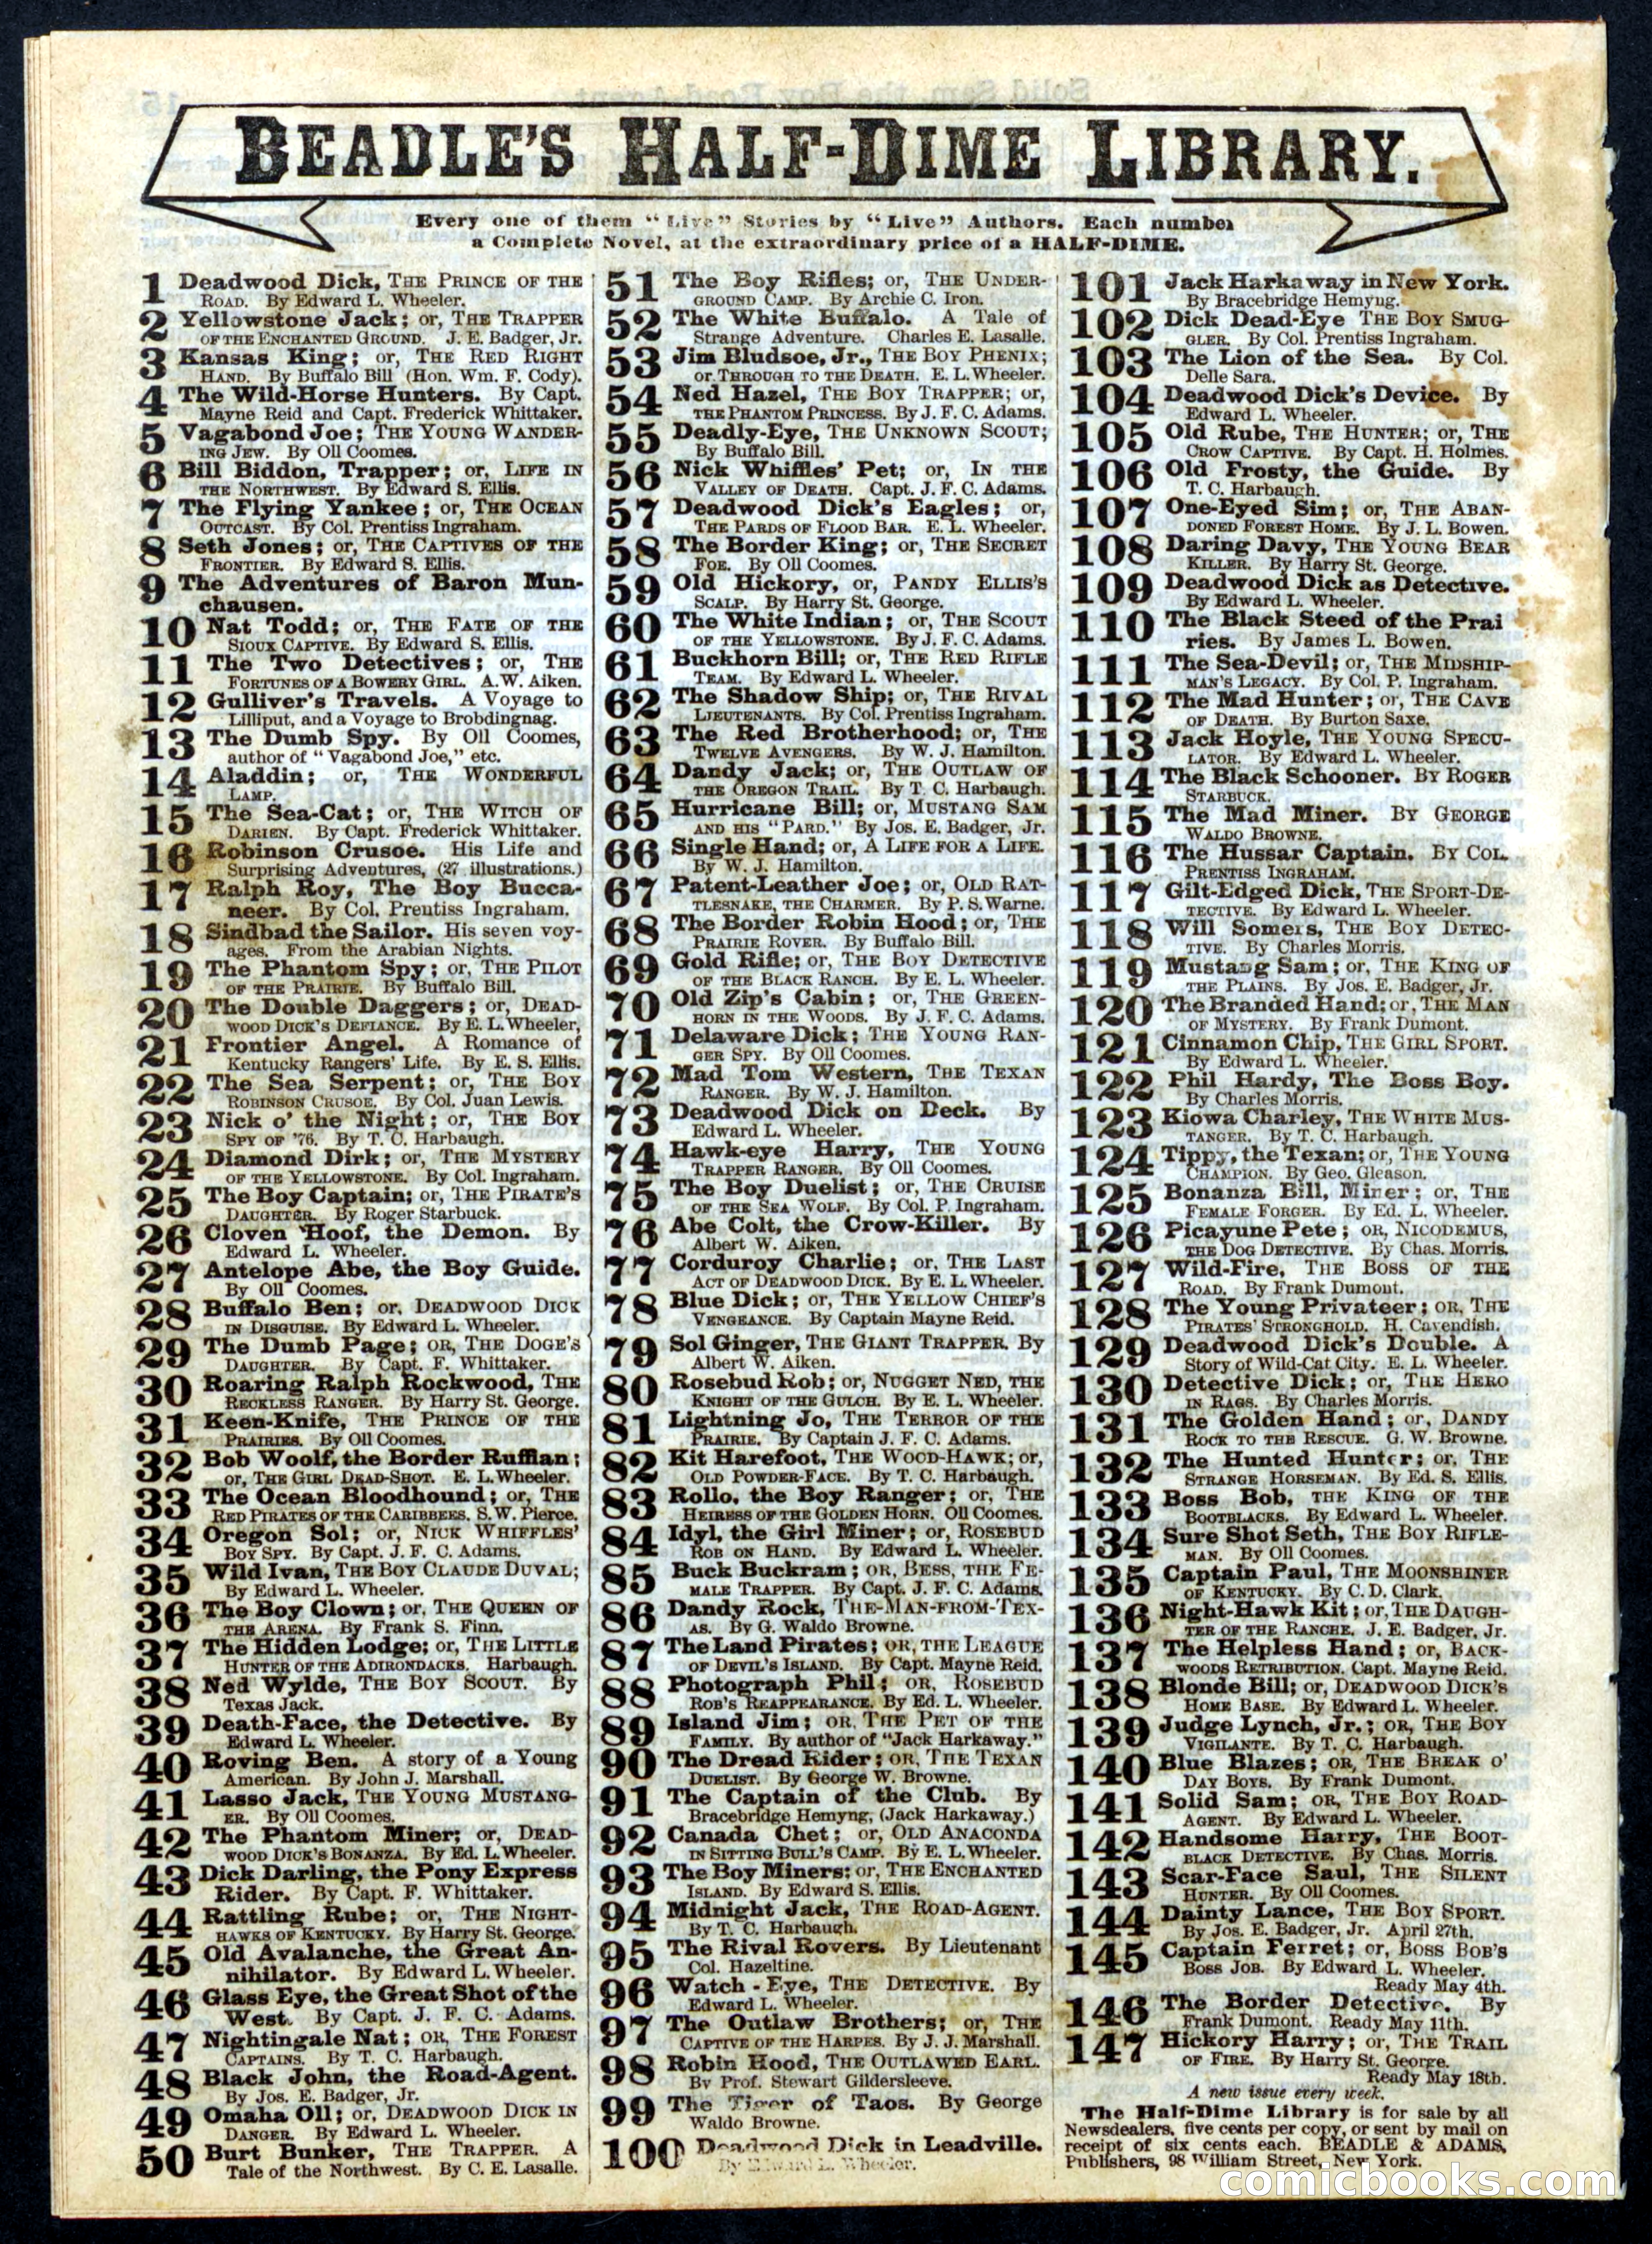 BEADLE'S HALF-DIME LIBRARY.
Every one of them "Live" Stories by "Live" Authors. Each number
a Complete Novel, at the extraordinary price of a HALF-DIME.
1 Deadwood Dick, THE PRINCE OF THE
ROAD. By Edward L. Wheeler.
2 Yellowstone Jack; or, THE TRAPPER
OF THE ENCHANTED GROUND. J. E. Badger, Jr.
3 Kansas King; or, THE RED RIGHT
HAND. By Buffalo Bill (Hon. Wm. F. Cody).
4 The Wild-Horse Hunters. By Capt.
Mayne Reid and Capt. Frederick Whittaker.
5 Vagabond Joe; THE YOUNG WANDER-
ING JEW. By Oll Coomes.
6 Bill Biddon, Trapper; or, LIFE IN
THE NORTHWEST. By Edward S. Ellis.
7 The Flying Yankee; or, THE OCEAN
OUTCAST. By Col. Prentiss Ingraham.
8 Seth Jones; or, THE CAPTIVES OF THE
FRONTIER. By Edward S. Ellis.
9 The Adventures of Baron Mun-
chausen.
10 Nat Todd; or, THE FATE OF THE
SIOUX CAPTIVE. By Edward S. Ellis.
11 The Two Detectives; or, THE
FORTUNES OF A BOWERY GIRL. A. W. Aiken.
12 Gulliver's Travels. A Voyage to
Lilliput, and a Voyage to Brobdingnag.
13 The Dumb Spy. By Oll Coomes,
author of "Vagabond Joe," etc.
14 Aladdin; or, THE WONDERFUL
LAMP.
15 The Sea-Cat; or, THE WITCH OF
DARIEN. By Capt. Frederick Whittaker.
16 Robinson Crusoe. His Life and
Surprising Adventures, (27 illustrations.)
17 Ralph Roy, The Boy Bucca-
neer. By Col. Prentiss Ingraham.
18 Sindbad the Sailor. His seven voy-
ages. From the Arabian Nights.
19 The Phantom Spy; or, THE PILOT
OF THE PRAIRIE. By Buffalo Bill.
20 The Double Daggers; or, DEAD-
WOOD DICK'S DEFIANCE. By E. L. Wheeler,
21 Frontier Angel. A Romance of
Kentucky Rangers' Life. By E. S. Ellis.
22 The Sea Serpent; or, THE BOY
ROBINSON CRUSOE. By Col. Juan Lewis.
23 Nick o' the Night; or, THE BOY
SPY OF '76. By T. C. Harbaugh.
24 Diamond Dirk; or, THE MYSTERY
OF THE YELLOWSTONE. By Col. Ingraham.
25 The Boy Captain; or, THE PIRATE'S
DAUGHTER. By Roger Starbuck.
26 Cloven Hoof, the Demon. By
Edward L. Wheeler.
27 Antelope Abe, the Boy Guide.
By Oll Coomes.
28 Buffalo Ben; or, DEADWOOD DICK
IN DISGUISE. By Edward L. Wheeler.
29 The Dumb Page; OR, THE DOGE'S
DAUGHTER. By Capt. F. Whittaker.
30 Roaring Ralph Rockwood, THE
RECKLESS RANGER. By Harry St. George.
31 Keen-Knife, THE PRINCE OF THE
PRAIRIES. By Oll Coomes.
32 Bob Woolf, the Border Ruffian;
or, THE GIRL DEAD-SHOT. E. L. Wheeler.
33 The Ocean Bloodhound; or, THE
RED PIRATES OF THE CARIBBEES. S. W. Pierce.
34 Oregon Sol; or, NICK WHIFFLES'
BOY SPY. By Capt. J. F. C. Adams.
35 Wild Ivan, THE BOY CLAUDE DUVAL;
By Edward L. Wheeler.
36 The Boy Clown; or, THE QUEEN OF
THE ARENA. By Frank S. Finn.
37 The Hidden Lodge; or, THE LITTLE
HUNTER OF THE ADIRONDACKS. Harbaugh.
38 Ned Wylde, THE BOY SCOUT. By
Texas Jack.
39 Death-Face, the Detective. By
Edward L. Wheeler.
40 Roving Ben. A story of a Young
American. By John J. Marshall.
41 Lasso Jack, THE YOUNG MUSTANG-
ER. By Oll Coomes.
42 The Phantom Miner; or, DEAD-
WOOD DICK'S BONANZA. By Ed. L. Wheeler.
43 Dick Darling, the Pony Express
Rider. By Capt. F. Whittaker.
44 Rattling Rube; or, THE NIGHT-
HAWKS OF KENTUCKY. By Harry St. George.
45 Old Avalanche, the Great An-
nihilator. By Edward L. Wheeler.
46 Glass Eye, the Great Shot of the
West. By Capt. J. F. C. Adams.
47 Nightingale Nat; OR, THE FOREST
CAPTAINS. By T. C. Harbaugh.
48 Black John, the Road-Agent.
By Jos. E. Badger, Jr.
49 Omaha Oll; or, DEADWOOD DICK IN
DANGER. By Edward L. Wheeler.
50 Burt Bunker, THE TRAPPER. A
Tale of the Northwest. By C. E. Lasalle.
51 The Boy Rifles; or, THE UNDER-
GROUND CAMP. By Archie C. Iron.
52 The White Buffalo. A Tale of
Strange Adventure. Charles E. Lasalle.
53 Jim Bludsoe, Jr., THE BOY PHENIX;
or THROUGH TO THE DEATH. E. L. Wheeler.
54 Ned Hazel, THE BOY TRAPPER; or,
THE PHANTOM PRINCESS. By J. F. C. Adams.
55 Deadly-Eye, THE UNKNOWN SCOUT;
By Buffalo Bill.
56 Nick Whiffles' Pet; or, IN THE
VALLEY OF DEATH. Capt. J. F. C. Adams.
57 Deadwood Dick's Eagles; or,
THE PARDS OF FLOOD BAR. E. L. Wheeler.
58 The Border King; or, THE SECRET
FOE. By Oll Coomes.
59 Old Hickory, or, PANDY ELLIS'S
SCALP. By Harry St. George.
60 The White Indian; or, THE SCOUT
OF THE YELLOWSTONE. By J. F. C. Adams.
61 Buckhorn Bill; or, THE RED RIFLE
TEAM. By Edward L. Wheeler.
62 The Shadow Ship; or, THE RIVAL
LIEUTENANTS. By Col. Prentiss Ingraham.
63 The Red Brotherhood; or, THE
TWELVE AVENGERS. By W. J. Hamilton.
64 Dandy Jack; or, THE OUTLAW OF
THE OREGON TRAIL. By T. C. Harbaugh.
65 Hurricane Bill; or, MUSTANG SAM
AND HIS "PARD." By Jos. E. Badger, Jr.
66 Single Hand; or, A LIFE FOR A LIFE.
By W. J. Hamilton.
67 Patent-Leather Joe; or, OLD RAT-
TLESNAKE, THE CHARMER. By P. S. Warne.
68 The Border Robin Hood; or, THE
PRAIRIE ROVER. By Buffalo Bill.
69 Gold Rifle; or, THE BOY DETECTIVE
OF THE BLACK RANCH. By E. L. Wheeler.
70 Old Zip's Cabin; or, THE GREEN-
HORN IN THE WOODS. By J. F. C. Adams.
71 Delaware Dick; THE YOUNG RAN-
GER SPY. By Oll Coomes.
72 Mad Tom Western, THE TEXAN
RANGER. By W. J. Hamilton.
73 Deadwood Dick on Deck. By
Edward L. Wheeler.
74 Hawk-eye Harry, THE YOUNG
TRAPPER RANGER. By Oll Coomes.
75 The Boy Duelist; or, THE CRUISE
OF THE SEA WOLF. By Col. P. Ingraham.
76 Abe Colt, the Crow-Killer. By
Albert W. Aiken.
77 Corduroy Charlie; or, THE LAST
ACT OF DEADWOOD DICK. By E. L. Wheeler.
78 Blue Dick; or, THE YELLOW CHIEF'S
VENGEANCE. By Captain Mayne Reid.
79 Sol Ginger, THE GIANT TRAPPER. By
Albert W. Aiken.
80 Rosebud Rob; or, NUGGET NED, THE
KNIGHT OF THE GULCH. By E. L. Wheeler.
81 Lightning Jo, THE TERROR OF THE
PRAIRIE. By Captain J. F. C. Adams.
82 Kit Harefoot, THE WOOD-HAWK; or,
OLD POWDER-FACE. By T. C. Harbaugh.
83 Rollo, the Boy Ranger; or, THE
HEIRESS OF THE GOLDEN HORN. Oll Coomes.
84 Idyl, the Girl Miner; or, ROSEBUD
ROB ON HAND. By Edward L. Wheeler.
85 Buck Buckram; OR, BESS, THE FE-
MALE TRAPPER. By Capt. J. F. C. Adams.
86 Dandy Rock, THE-MAN-FROM-TEX-
AS. By G. Waldo Browne.
87 The Land Pirates; OR, THE LEAGUE
OF DEVIL'S ISLAND. By Capt. Mayne Reid.
88 Photograph Phil; OR, ROSEBUD
ROB'S REAPPEARANCE. By Ed. L. Wheeler.
89 Island Jim; OR, THE PET OF THE
FAMILY. By author of "Jack Harkaway."
90 The Dread Rider; OR, THE TEXAN
DUELIST. By George W. Browne.
91 The Captain of the Club. By
Bracebridge Hemyng, (Jack Harkaway.)
92 Canada Chet; or, OLD ANACONDA
IN SITTING BULL'S CAMP. By E. L. Wheeler.
93 The Boy Miners; or, THE ENCHANTED
ISLAND. By Edward S. Ellis.
94 Midnight Jack, THE ROAD-AGENT.
By T. C. Harbaugh.
95 The Rival Rovers. By Lieutenant
Col. Hazeltine.
96 Watch-Eye, THE DETECTIVE. By
Edward L. Wheeler.
97 The Outlaw Brothers; or, THE
CAPTIVE OF THE HARPES. By J. J. Marshall.
98 Robin Hood, THE OUTLAWED EARL.
By Prof. Stewart Gildersleeve.
99 The Tiger of Taos. By George
Waldo Browne.
100 Deadwood Dick in Leadville.
By Edward L. Wheeler.
101 Jack Harkaway in New York.
By Bracebridge Hemyng.
102 Dick Dead-Eye THE BOY SMUG-
GLER. By Col. Prentiss Ingraham.
103 The Lion of the Sea. By Col.
Delle Sara.
104 Deadwood Dick's Device. By
Edward L. Wheeler.
105 Old Rube, THE HUNTER; or, THE
CROW CAPTIVE. By Capt. H. Holmes.
106 Old Frosty, the Guide. By
T. C. Harbaugh.
107 One-Eyed Sim; or, THE ABAN-
DONED FOREST HOME. By J. L. Bowen.
108 Daring Davy, THE YOUNG BEAR
KILLER. By Harry St. George.
109 Deadwood Dick as Detective.
By Edward L. Wheeler.
110 The Black Steed of the Prai
ries. By James L. Bowen.
111 The Sea-Devil; or, THE MIDSHIP-
MAN'S LEGACY. By Col. P. Ingraham.
112 The Mad Hunter; or, THE CAVE
OF DEATH. By Burton Saxe.
113 Jack Hoyle, THE YOUNG SPECU-
LATOR. By Edward L. Wheeler.
114 The Black Schooner. BY ROGER
STARBUCK.
115 The Mad Miner. BY GEORGE
WALDO BROWNE.
116 The Hussar Captain. BY COL.
PRENTISS INGRAHAM.
117 Gilt-Edged Dick, THE SPORT-DE-
TECTIVE. By Edward L. Wheeler.
118 Will Somers, THE BOY DETEC-
TIVE. By Charles Morris.
119 Mustang Sam; or, THE KING OF
THE PLAINS. By Jos. E. Badger, Jr.
120 The Branded Hand; or, THE MAN
OF MYSTERY. By Frank Dumont.
121 Cinnamon Chip, THE GIRL SPORT.
By Edward L. Wheeler.
122 Phil Hardy, The Boss Boy.
By Charles Morris.
123 Kiowa Charley, THE WHITE MUS-
TANGER. By T. C. Harbaugh.
124 Tippy, the Texan; or, THE YOUNG
CHAMPION. By Geo. Gleason.
125 Bonanza Bill, Miner; or, THE
FEMALE FORGER. By Ed. L. Wheeler.
126 Picayune Pete; OR, NICODEMUS,
THE DOG DETECTIVE. By Chas. Morris.
127 Wild-Fire, THE BOSS OF THE
ROAD. By Frank Dumont.
128 The Young Privateer; OR, THE
PIRATES' STRONGHOLD. H. Cavendish.
129 Deadwood Dick's Double. A
Story of Wild-Cat City. E. L. Wheeler.
130 Detective Dick; or, THE HERO
IN RAGS. By Charles Morris.
131 The Golden Hand; or, DANDY
ROCK TO THE RESCUE. G. W. Browne.
132 The Hunted Hunter; or, THE
STRANGE HORSEMAN. By Ed. S. Ellis.
133 Boss Bob, THE KING OF THE
BOOTBLACKS. By Edward L. Wheeler.
134 Sure Shot Seth, THE BOY RIFLE-
MAN. By Oll Coomes.
135 Captain Paul, THE MOONSHINER
OF KENTUCKY. By C. D. Clark.
136 Night-Hawk Kit; or, THE DAUGH-
TER OF THE RANCHE. J. E. Badger, Jr.
137 The Helpless Hand; or, BACK-
WOODS RETRIBUTION. Capt. Mayne Reid.
138 Blonde Bill; or, DEADWOOD DICK'S
HOME BASE. By Edward L. Wheeler.
139 Judge Lynch, Jr.; OR, THE BOY
VIGILANTE. By T. C. Harbaugh.
140 Blue Blazes; OR, THE BREAK O'
DAY BOYS. By Frank Dumont.
141 Solid Sam; OR, THE BOY ROAD-
AGENT. By Edward L. Wheeler.
142 Handsome Harry, THE BOOT-
BLACK DETECTIVE. By Chas. Morris.
143 Scar-Face Saul, THE SILENT
HUNTER. By Oll Coomes.
144 Dainty Lance, THE BOY SPORT.
By Jos. E. Badger, Jr. April 27th.
145 Captain Ferret; or, BOSS BOB'S
BOSS JOB. By Edward L. Wheeler.
Ready May 4th.
146 The Border Detective. By
Frank Dumont. Ready May 11th.
147 Hickory Harry; or, THE TRAIL
OF FIRE. By Harry St. George.
Ready May 18th.
A new issue every week.
The Half-Dime Library is for sale by all
Newsdealers, five cents per copy, or sent by mail on
receipt of six cents each. BEADLE & ADAMS,
Publishers, 98 William Street, New York.
comicbooks.com